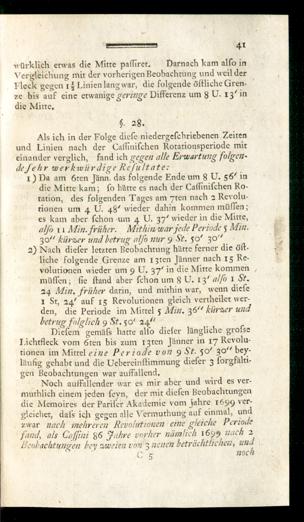 41
würklich etwas die Mitte passiret. Darnach kam also in
Vergleichung mit der vorherigen Beobachtung und weil der
Fleck gegen 1½ Linien lang war, die folgende östliche Gren-
ze bis auf eine etwanige geringe Differenz um 8 U. 13′ in
die Mitte.
§. 28.
Als ich in der Folge diese niedergeschriebenen Zeiten
und Linien nach der Cassinischen Rotationsperiode mit
einander verglich, fand ich gegen alle Erwartung folgen-
de sehr merkwürdige Resultate:
1) Da am 6ten Jänn. das folgende Ende um 8 U. 56′ in
die Mitte kam; so hätte es nach der Cassinischen Ro-
tation, des folgenden Tages am 7ten nach 2 Revolu-
tionen um 4 U. 48′ wieder dahin kommen müssen;
es kam aber schon um 4 U. 37′ wieder in die Mitte,
also 11 Min. früher. Mithin war jede Periode 5 Min.
30″ kürzer und betrug also nur 9 St. 50′ 30″
2) Nach dieser letzten Beobachtung hätte ferner die öst-
liche folgende Grenze am 13ten Jänner nach 15 Re-
volutionen wieder um 9 U. 37′ in die Mitte kommen
müssen; sie stand aber schon um 8 U. 13′ also 1 St.
24 Min. früher darin, und mithin war, wenn diese
1 St. 24′ auf 15 Revolutionen gleich vertheilet wer-
den, die Periode im Mittel 5 Min. 36″ kürzer und
betrug folglich 9 St. 50′ 24″
Diesem gemäss hatte also dieser längliche grosse
Lichtfleck vom 6ten bis zum 13ten Jänner in 17 Revolu-
tionen im Mittel eine Periode von 9 St. 50′ 30″ bey-
läufig gehabt und die Uebereinstimmung dieser 3 sorgfälti-
gen Beobachtungen war auffallend.
Noch auffallender war es mir aber und wird es ver-
muthlich einem jeden seyn, der mit diesen Beobachtungen
die Memoires der Pariser Akademie vom jahre 1699 ver-
gleichet, dass ich gegen alle Vermuthung auf einmal, und
zwar nach mehreren Revolutionen eine gleiche Periode
fand, als Cassini 86 Jahre vorher nämlich 1699 nach 2
Beobachtungen bey zweien von 3 neuen beträchtlichen, und
C 5
noch